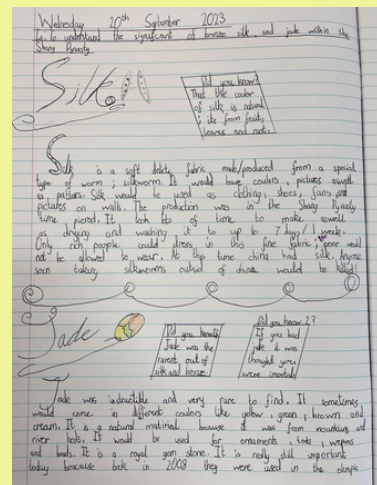 Wednesday 20th September 2023
to understand the significant of bronze silk and jade within the
Shang Dynasty
Silk
Did you know?
That the couler
of silk is natural
; its from fruit,
leaves and roots.
Silk is a soft delicate fabric made/produced from a special
type of worm; silkworm. It would have coulers, pictures aswell
as patterns. Silk would be used as clothing, shoes, fans and
pictures on walls. The production was in the Shang Dynasty
time pierod. It took lots of time to make aswell
as drying and washing it to up to 7 days/1 week.
Only rich people could dress in this fine fabric, poor would
not be allowed to wear. At this time china had silk. Anyone
seen taking silkworms outside of china would be killed!
Jade
Did you know?
Jade was the
rarest out of
silk and bronze.
Did you know 2?
If you had
jade it was
thought you
were imortals
Jade was indructible and very rare to find. It sometimes
would come in different coulers like yellow, green, brown and
cream. It is a natural matirial because it was from mountains and
river beds. It would be used for ornaments, tools, wepens
and beads. It is a royal gem stone. It is really still important
today beacause back in 2008 they were used in the olimpic